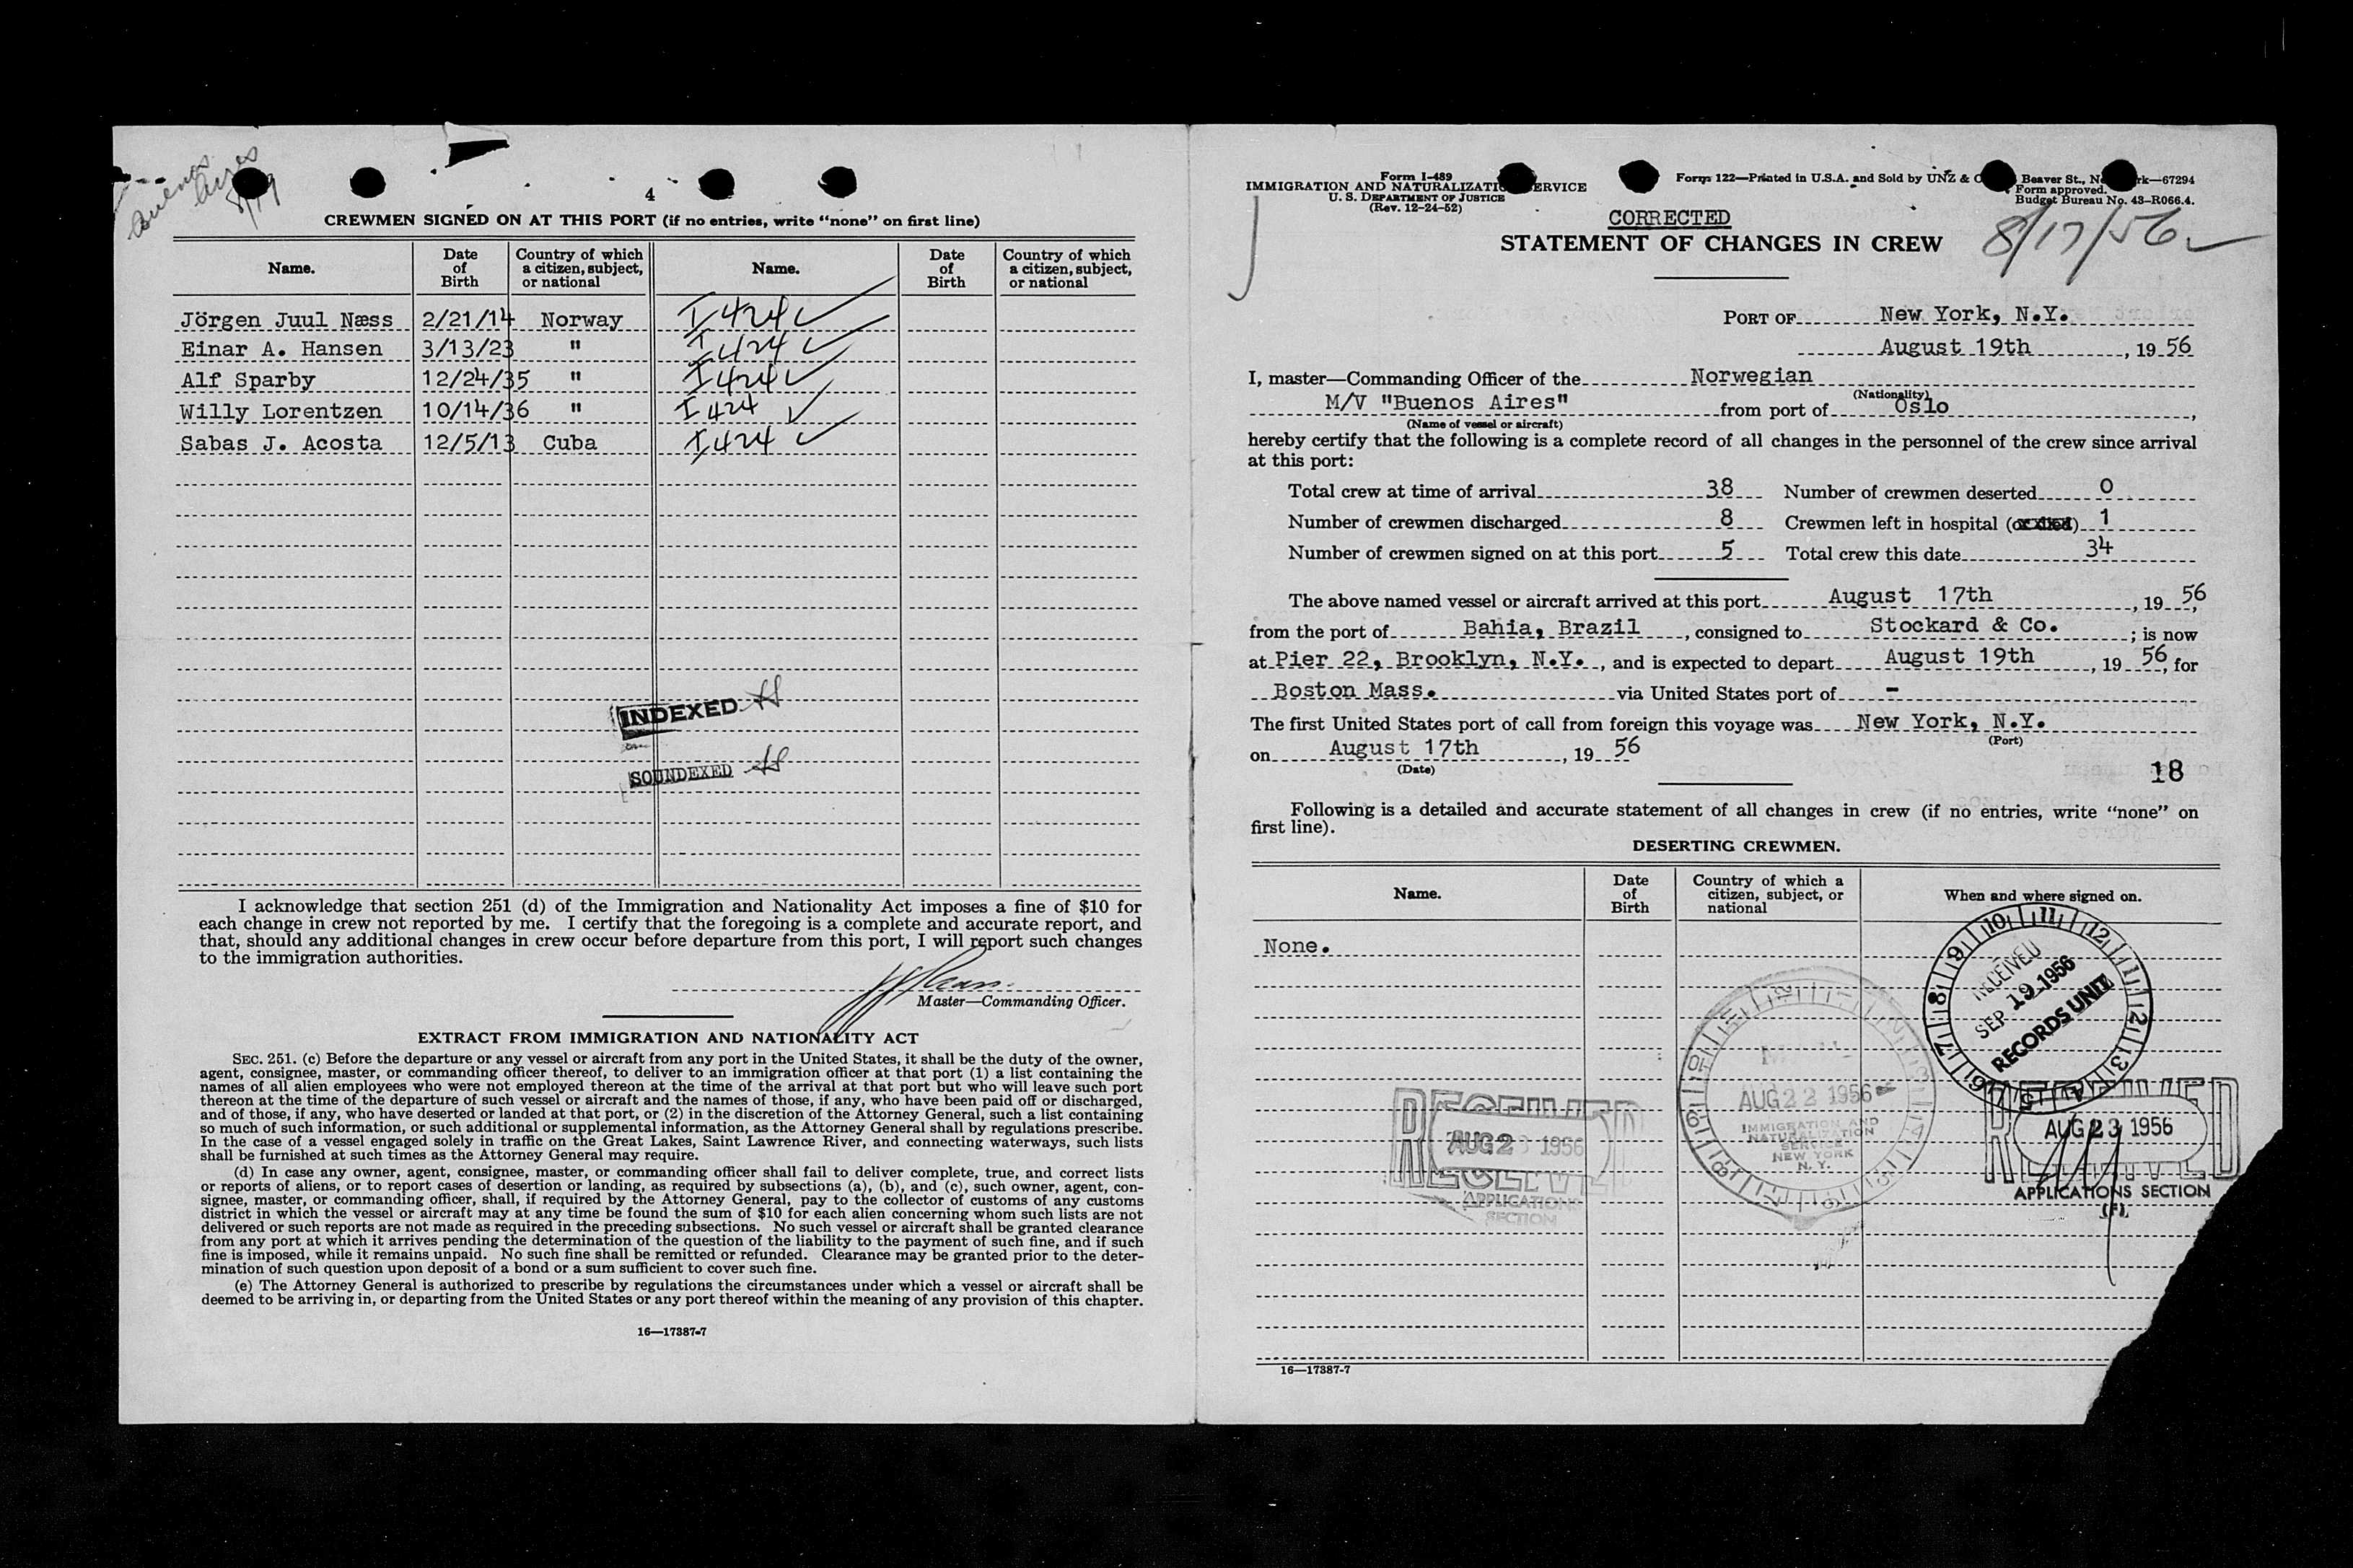 Buenos
Aires
8/19
4
CREWMEN SIGNED ON AT THIS PORT (if no entries, write “none” on first line)
Name. Date of Birth Country of which a citizen, subject, or national Name. Date of Birth Country of which a citizen, subject, or national
Jörgen Juul Næss 2/21/14 Norway I 424 ✓
Einar A. Hansen 3/13/23 " I 424 ✓
Alf Sparby 12/24/35 " I 424 ✓
Willy Lorentzen 10/14/36 " I 424 ✓
Sabas J. Acosta 12/5/13 Cuba I 424 ✓
INDEXED
SOUNDEXED
I acknowledge that section 251 (d) of the Immigration and Nationality Act imposes a fine of $10 for
each change in crew not reported by me. I certify that the foregoing is a complete and accurate report, and
that, should any additional changes in crew occur before departure from this port, I will report such changes
to the immigration authorities.
Master—Commanding Officer.
EXTRACT FROM IMMIGRATION AND NATIONALITY ACT
SEC. 251. (c) Before the departure or any vessel or aircraft from any port in the United States, it shall be the duty of the owner,
agent, consignee, master, or commanding officer thereof, to deliver to an immigration officer at that port (1) a list containing the
names of all alien employees who were not employed thereon at the time of the arrival at that port but who will leave such port
thereon at the time of the departure of such vessel or aircraft and the names of those, if any, who have been paid off or discharged,
and of those, if any, who have deserted or landed at that port, or (2) in the discretion of the Attorney General, such a list containing
so much of such information, or such additional or supplemental information, as the Attorney General shall by regulations prescribe.
In the case of a vessel engaged solely in traffic on the Great Lakes, Saint Lawrence River, and connecting waterways, such lists
shall be furnished at such times as the Attorney General may require.
(d) In case any owner, agent, consignee, master, or commanding officer shall fail to deliver complete, true, and correct lists
or reports of aliens, or to report cases of desertion or landing, as required by subsections (a), (b), and (c), such owner, agent, con-
signee, master, or commanding officer, shall, if required by the Attorney General, pay to the collector of customs of any customs
district in which the vessel or aircraft may at any time be found the sum of $10 for each alien concerning whom such lists are not
delivered or such reports are not made as required in the preceding subsections. No such vessel or aircraft shall be granted clearance
from any port at which it arrives pending the determination of the question of the liability to the payment of such fine, and if such
fine is imposed, while it remains unpaid. No such fine shall be remitted or refunded. Clearance may be granted prior to the deter-
mination of such question upon deposit of a bond or a sum sufficient to cover such fine.
(e) The Attorney General is authorized to prescribe by regulations the circumstances under which a vessel or aircraft shall be
deemed to be arriving in, or departing from the United States or any port thereof within the meaning of any provision of this chapter.
16—17387-7
Form I-489
IMMIGRATION AND NATURALIZATION SERVICE
U. S. DEPARTMENT OF JUSTICE
(Rev. 12-24-52)
Form 122—Printed in U.S.A. and Sold by UNZ & C Beaver St., N rk—67294
Form approved.
Budget Bureau No. 43-R066.4.
CORRECTED
STATEMENT OF CHANGES IN CREW
8/17/56 ✓
PORT OF New York, N.Y.
August 19th, 19 56
I, master—Commanding Officer of the Norwegian
(Nationality)
M/V "Buenos Aires" from port of Oslo,
(Name of vessel or aircraft)
hereby certify that the following is a complete record of all changes in the personnel of the crew since arrival
at this port:
Total crew at time of arrival 38 Number of crewmen deserted 0
Number of crewmen discharged 8 Crewmen left in hospital (or died) 1
Number of crewmen signed on at this port 5 Total crew this date 34
The above named vessel or aircraft arrived at this port August 17th, 19 56,
from the port of Bahia, Brazil, consigned to Stockard & Co.; is now
at Pier 22, Brooklyn, N.Y., and is expected to depart August 19th, 19 56, for
Boston Mass. via United States port of -
The first United States port of call from foreign this voyage was New York, N.Y.
(Port)
on August 17th, 19 56
(Date)
18
Following is a detailed and accurate statement of all changes in crew (if no entries, write “none” on
first line).
DESERTING CREWMEN.
Name. Date of Birth Country of which a citizen, subject, or national When and where signed on.
None.
RECEIVED
SEP 19 1956
RECORDS UNIT
AUG 22 1956
IMMIGRATION AND
NATURALIZATION
SERVICE
NEW YORK
N. Y.
RECEIVED
AUG 2 1956
APPLICATIONS
SECTION
RECEIVED
AUG 23 1956
APPLICATIONS SECTION
16—17387-7